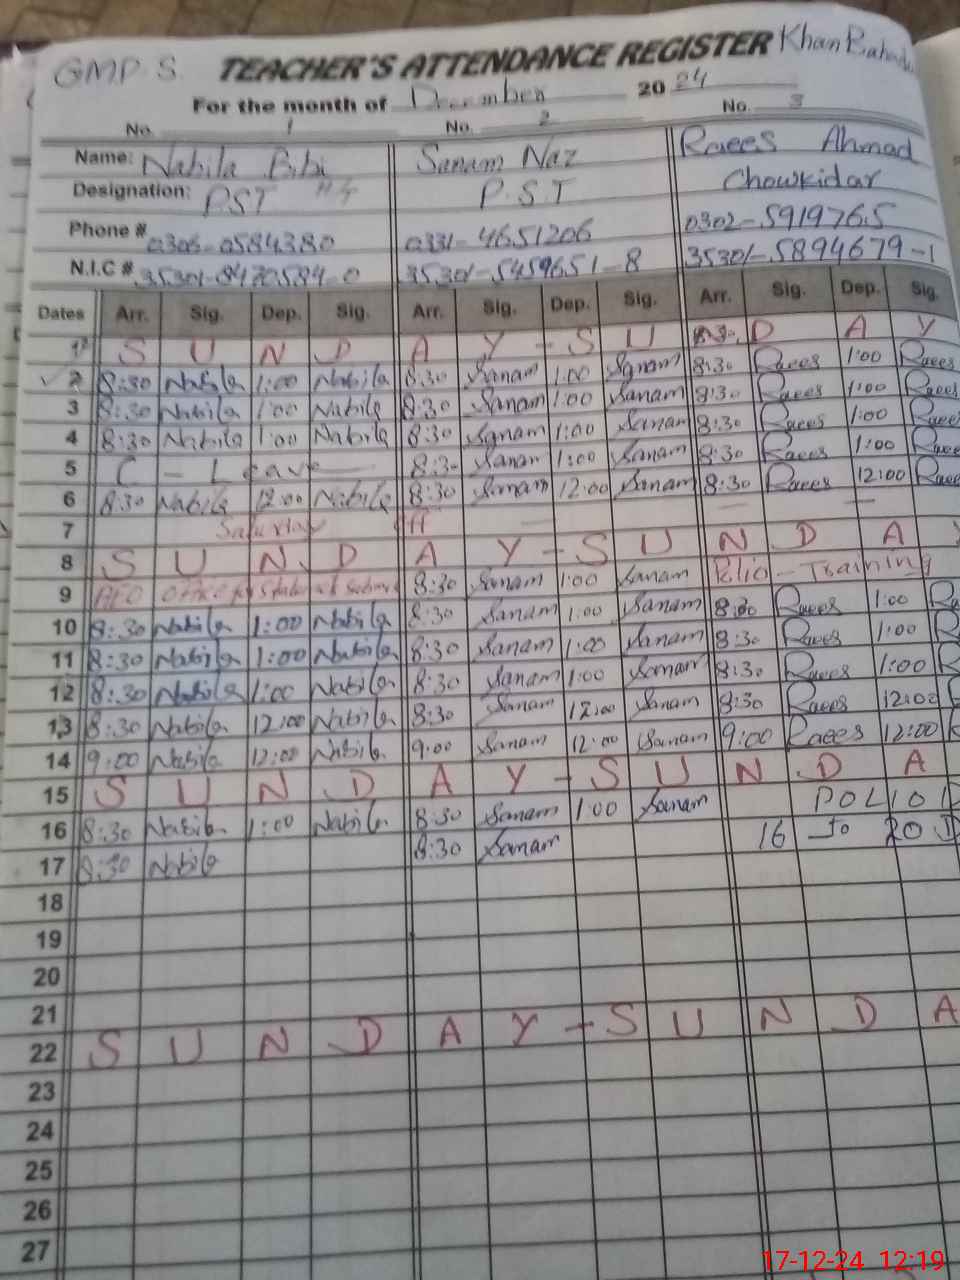 G.M.P.S. TEACHER'S ATTENDANCE REGISTER Khan Bahadu
For the month of December 20 24
No. 1 No. 2 No. 3
Name: Nabila Bibi Sanam Naz Raees Ahmad
Designation: PST P.S.T Chowkidar
Phone # 0306-0584380 0331-4651206 0302-5919765
N.I.C # 35301-8470584-0 35301-5459651-8 35301-5894679-1
Dates Arr. Sig. Dep. Sig. Arr. Sig. Dep. Sig. Arr. Sig. Dep. Sig.
1 S U N D A Y - S U N D A Y
2 8:30 Nabila 1:00 Nabila 8:30 Sanam 1:00 Sanam 8:30 Raees 1:00 Raees
3 8:30 Nabila 1:00 Nabila 8:30 Sanam 1:00 Sanam 8:30 Raees 1:00 Raees
4 8:30 Nabila 1:00 Nabila 8:30 Sanam 1:00 Sanam 8:30 Raees 1:00 Raees
5 C - Leave 8:30 Sanam 1:00 Sanam 8:30 Raees 1:00 Raees
6 8:30 Nabila 12:00 Nabila 8:30 Sanam 12:00 Sanam 8:30 Raees 12:00 Raees
7 Saturday
8 S U N D A Y - S U N D A Y
9 AEO office for 8:30 Sanam 1:00 Sanam Polio - Training
10 8:30 Nabila 1:00 Nabila 8:30 Sanam 1:00 Sanam 8:30 Raees 1:00 Ra
11 8:30 Nabila 1:00 Nabila 8:30 Sanam 1:00 Sanam 8:30 Raees 1:00 R
12 8:30 Nabila 1:00 Nabila 8:30 Sanam 1:00 Sanam 8:30 Raees 1:00 R
13 8:30 Nabila 12:00 Nabila 8:30 Sanam 12:00 Sanam 8:30 Raees 12:00 R
14 9:00 Nabila 12:00 Nabila 9:00 Sanam 12:00 Sanam 9:00 Raees 12:00 R
15 S U N D A Y - S U N D A
16 8:30 Nabila 1:00 Nabila 8:30 Sanam 1:00 Sanam POLIO D
17 8:30 Nabila 8:30 Sanam 16 To 20 D
18
19
20
21
22 S U N D A Y - S U N D A
23
24
25
26
27
17-12-24 12:19